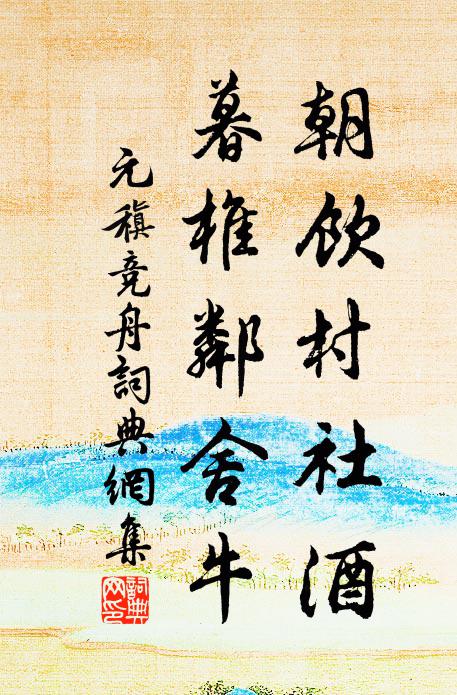 朝飲村社酒
暮椎鄰舍牛
元稹竞舟詞典網集
詞典
网印